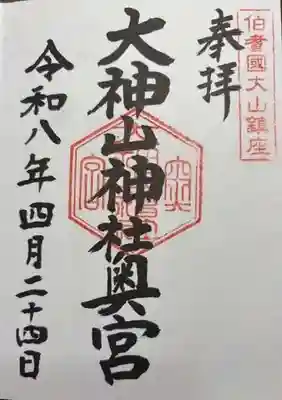 伯耆國大山鎮座
奉拝
大神山神社奥宮
令和八年四月二十四日